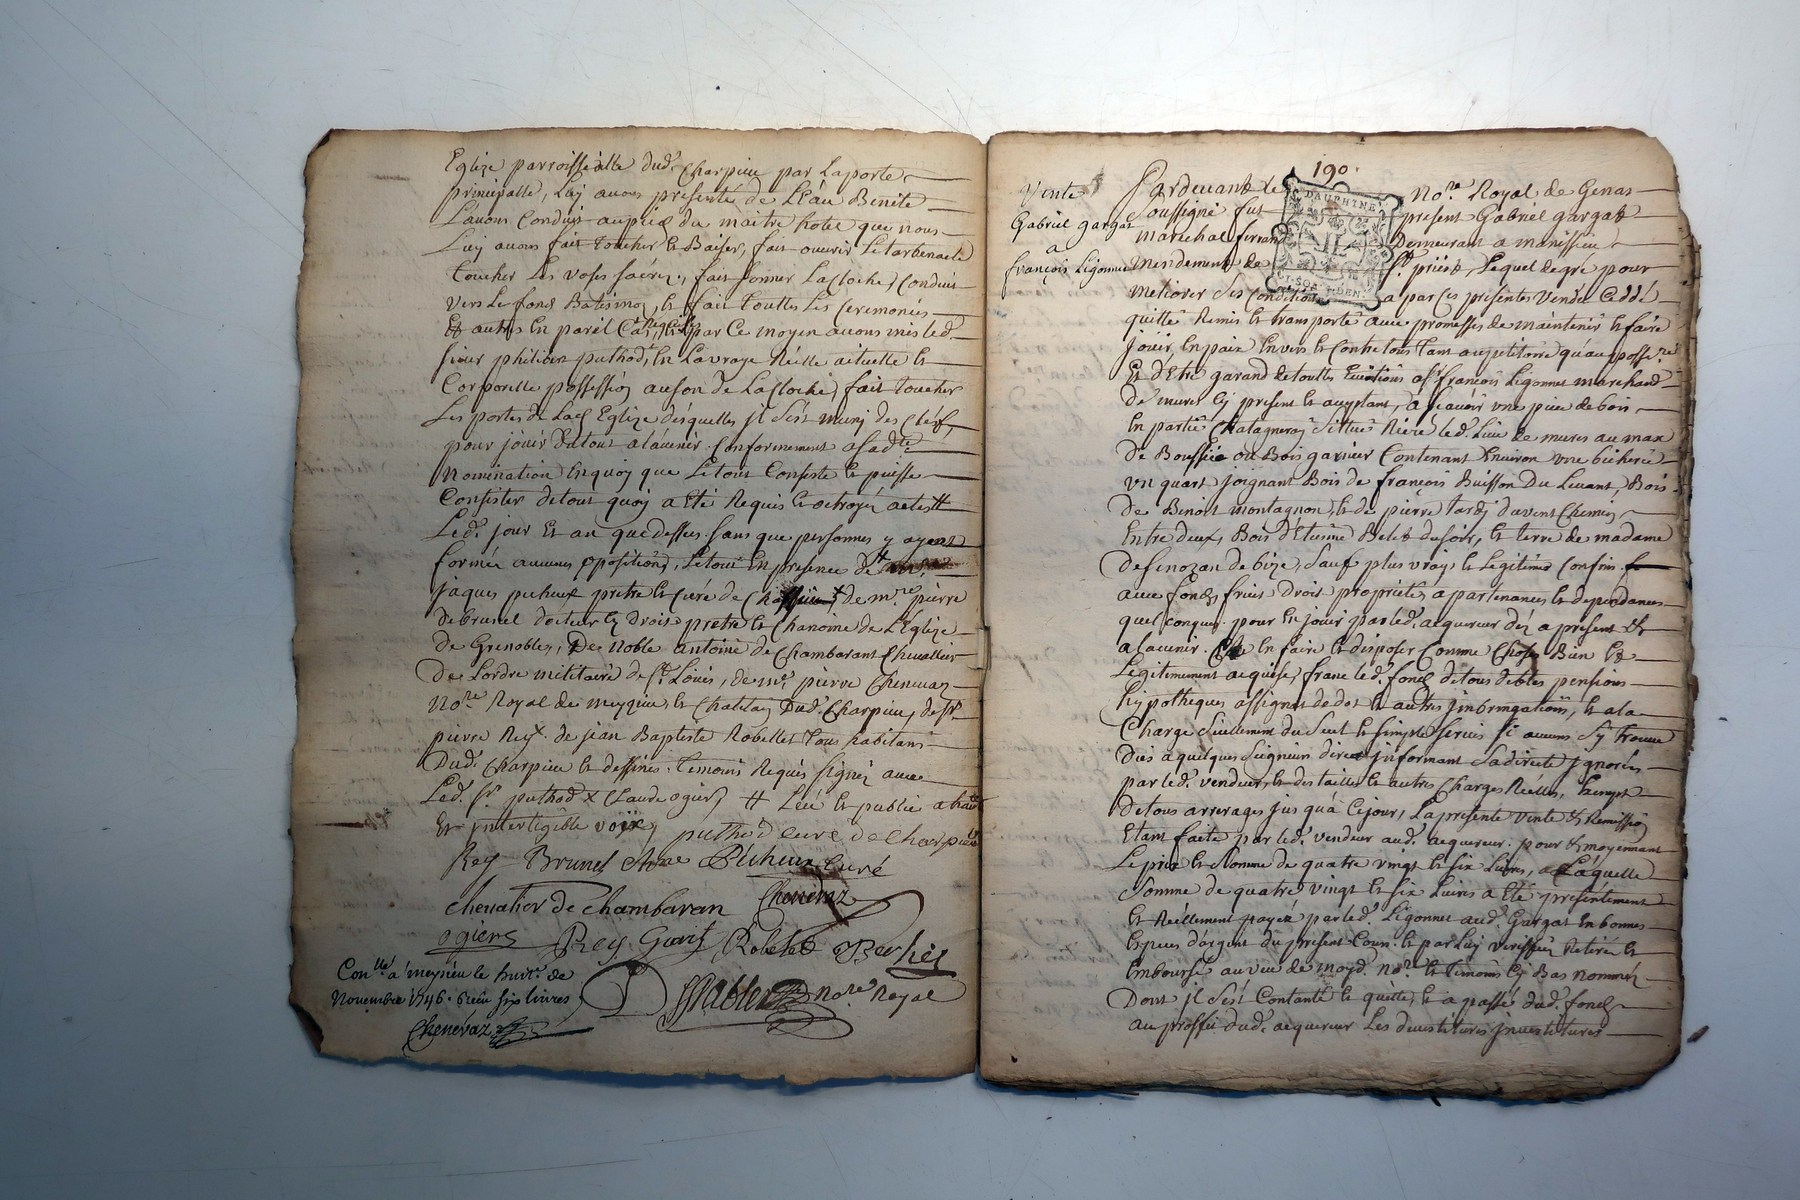 Eglize parroissialle dud. Charpieu par Laporte
principalle, Luy avons présenté de L'éau Benite
L'avons Conduit aupres du maitre hotel que nous
Luy avons fait toucher et Baiser, fait ouvrir Le tarbenacle
toucher Les vases sacrés, fait sonner La Cloche, Conduit
vers Le fond Batismal, et fait touttes Les Ceremonies
et autres en pareil Cas requises, et par Ce moyen avons mis led.
sieur puthod, en La vraye Réelle actuelle et
Corporelle possession au son de La Cloche, fait toucher
Les portes de Lad. Eglize desquelles jl s'est muny des Clefs,
pour jouir du tout a l'avenir Conformement a sad.te
Nomination En quoy que Le tout Consiste et puisse
Consister de tout quoy a eté Requis et octroyé acte #
Led. jour et an que dessus sans que personnes y ayent
formée aucunes oppositions, Le tout En presence de
jaques pretre et Curé de de m.re pierre
de brunel docteur En Droit pretre et Chanoine de L'Eglize
de Grenoble, De Noble antoine de Chambarant Chevallier
De Lordre militaire de St. Loüis, de m.e pierre Chenevaz
No.re Royal de meyzieu et Chatelain Dud. Charpieu, de sr.
pierre Rey de jean Baptiste Robellet tous habitans
Dud. Charpieu et dessines, temoins Requis signez avec
Led. sr. puthod x Claude ogier, # Leüe et publié a haute
Et jntertigible voix puthod curé de Charpieu
Rey Brunel chne Picheur curé
chevalier de Chambaran Chenevaz
ogiers Rey Robelet
Con.lle a meyzieu le huit.e de
Novembre 1746. reçu six livres
Chenevaz
No.re Royal
190.
Vente
Gabriël gargat
a
françois Ligonnet
DAUPHINE
SOLS
DEN.
Pardevant le No.re Royal de Genas
soussigné fut present Gabriël gargat
marechal ferrand Demeurant a manissieu
mendement de St. priest Lequel de gré pour
meliorer ses Conditions a par Ces présentes vendu Cédé
quitté Remis et transporté avec promesses de maintenir et faire
jouir En paix Envers et Contre tous tant au petitoire qu'au posse.re
Et D'être garand de touttes Evictions a sr. françois Ligonnet marchand
de mures Cy present et acceptant, a scavoir une piece de bois
En partie Chatagneray située Riere led. Lieu de mures au max
de Boussiée ou Bois garnier Contenant Environ une bicherée
un quart joignant Bois de françois Buisson Du Levant, Bois
de Benoit montagnon, et de pierre tardy du vent Chemin
Entre deux, Bois d'Etienne Belet du soir, et terre de madame
de senozan de bize, sauf plus vrays et Legitimes Confins
avec fonds fruits Droits proprietés apartenances et dependances
quelconques pour En jouir par led. acquereur dez a présent et
a lavenir. En faire et disposer Comme Chose Bien et
Legitimement acquise, franc led. fond de tous debtes pensions
hypotheques assignas de dot et autres jmbrigations, et a la
Charge seullement du seul et simple servis si aucuns s'y trouve
Dus a quelques seigneurs direct jnformant sa directe jgnorées
par led. vendeur, et des tailles et autres Charges Réelles, Exempt
de tous arrerages jusqu'à Cejour, La présente vente et Remission
Etant faite par led. vendeur aud. acquereur pour et moyennant
Le prix et somme de quatre vingt et six Livres, a Laquelle
somme de quatre vingt et six Livres a eté présentement
et Réellement payée par led. Ligonnet aud. Gargat en bonnes
especes d'argent du present Cours et par Luy veriffiées Retirée et
Emboursé au veu de moyd. No.re et temoins Cy Bas nommés
Dont jl s'est Contanté et quitté, et a passé dud. fond
au proffit dud. acquereur Les devestitures jnvestitures